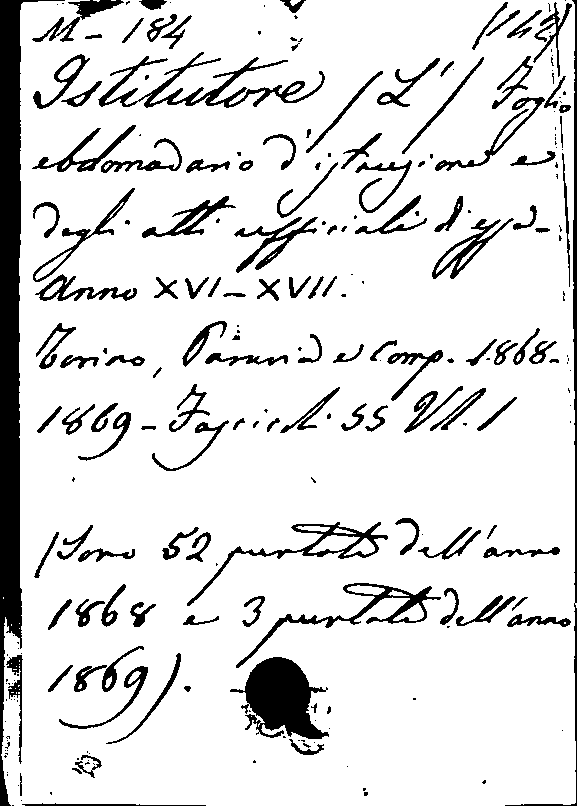 M - 184 (142)
Istitutore (L') Foglio
ebdomadario d'istruzione e
degli atti ufficiali di essa -
Anno XVI - XVII.
Torino, Paravia e Comp. 1868-
1869 - Fascicoli 55 Vol. 1
(Sono 52 puntate dell'anno
1868 e 3 puntate dell'anno
1869).